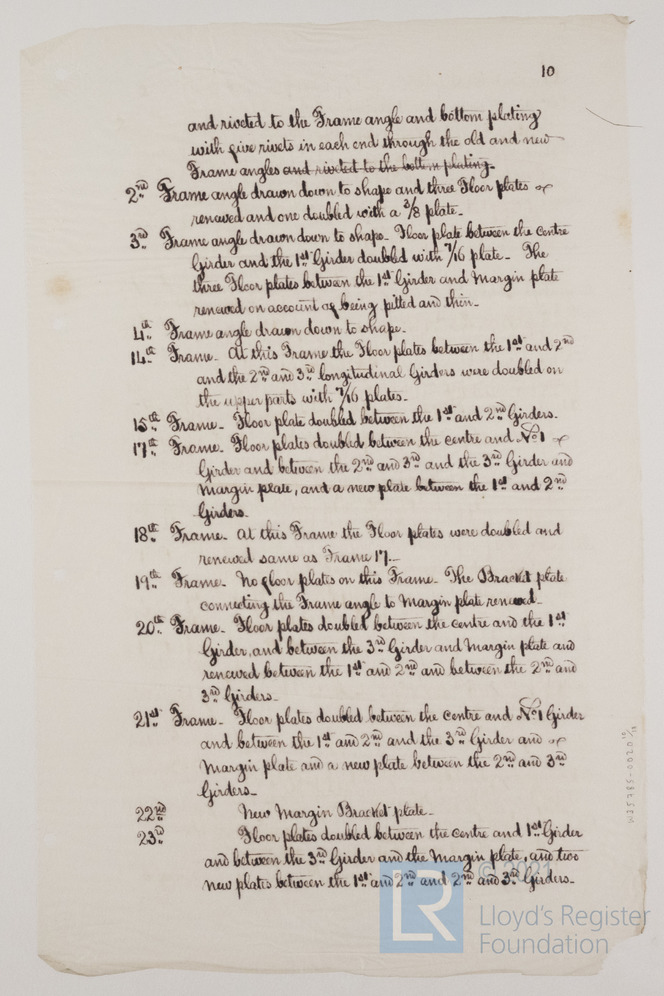 10
and riveted to the Frame angle and bottom plating
with five rivets in each end through the old and new
Frame angles and riveted to the bottom plating.
2nd Frame angle drawn down to shape and three Floor plates
renewed and one doubled with a 3/8 plate.
3rd Frame angle drawn down to shape. Floor plate between the centre
Girder and the 1st Girder doubled with 7/16 plate. The
three Floor plates between the 1st Girder and Margin plate
renewed on account of being pitted and thin.
4th Frame angle drawn down to shape.
14th Frame. At this Frame the Floor plates between the 1st and 2nd
and the 2nd and 3rd longitudinal Girders were doubled on
the upper parts with 7/16 plates.
15th Frame. Floor plate doubled between the 1st and 2nd Girders.
17th Frame. Floor plates doubled between the centre and No 1
Girder and between the 2nd and 3rd and the 3rd Girder and
Margin plate, and a new plate between the 1st and 2nd
Girders.
18th Frame. At this Frame the Floor plates were doubled and
renewed same as Frame 17.
19th Frame. No floor plates on this Frame. The Bracket plate
connecting the Frame angle to Margin plate renewed.
20th Frame. Floor plates doubled between the centre and the 1st
Girder, and between the 3rd Girder and Margin plate and
renewed between the 1st and 2nd and between the 2nd and
3rd Girders.
21st Frame. Floor plates doubled between the centre and No 1 Girder
and between the 1st and 2nd and the 3rd Girder and
Margin plate and a new plate between the 2nd and 3rd
Girders.
22nd New Margin Bracket plate.
23rd Floor plates doubled between the centre and 1st Girder
and between the 3rd Girder and the Margin plate, and two
new plates between the 1st and 2nd and 2nd and 3rd Girders.
© 2021
LR Lloyd's Register
Foundation